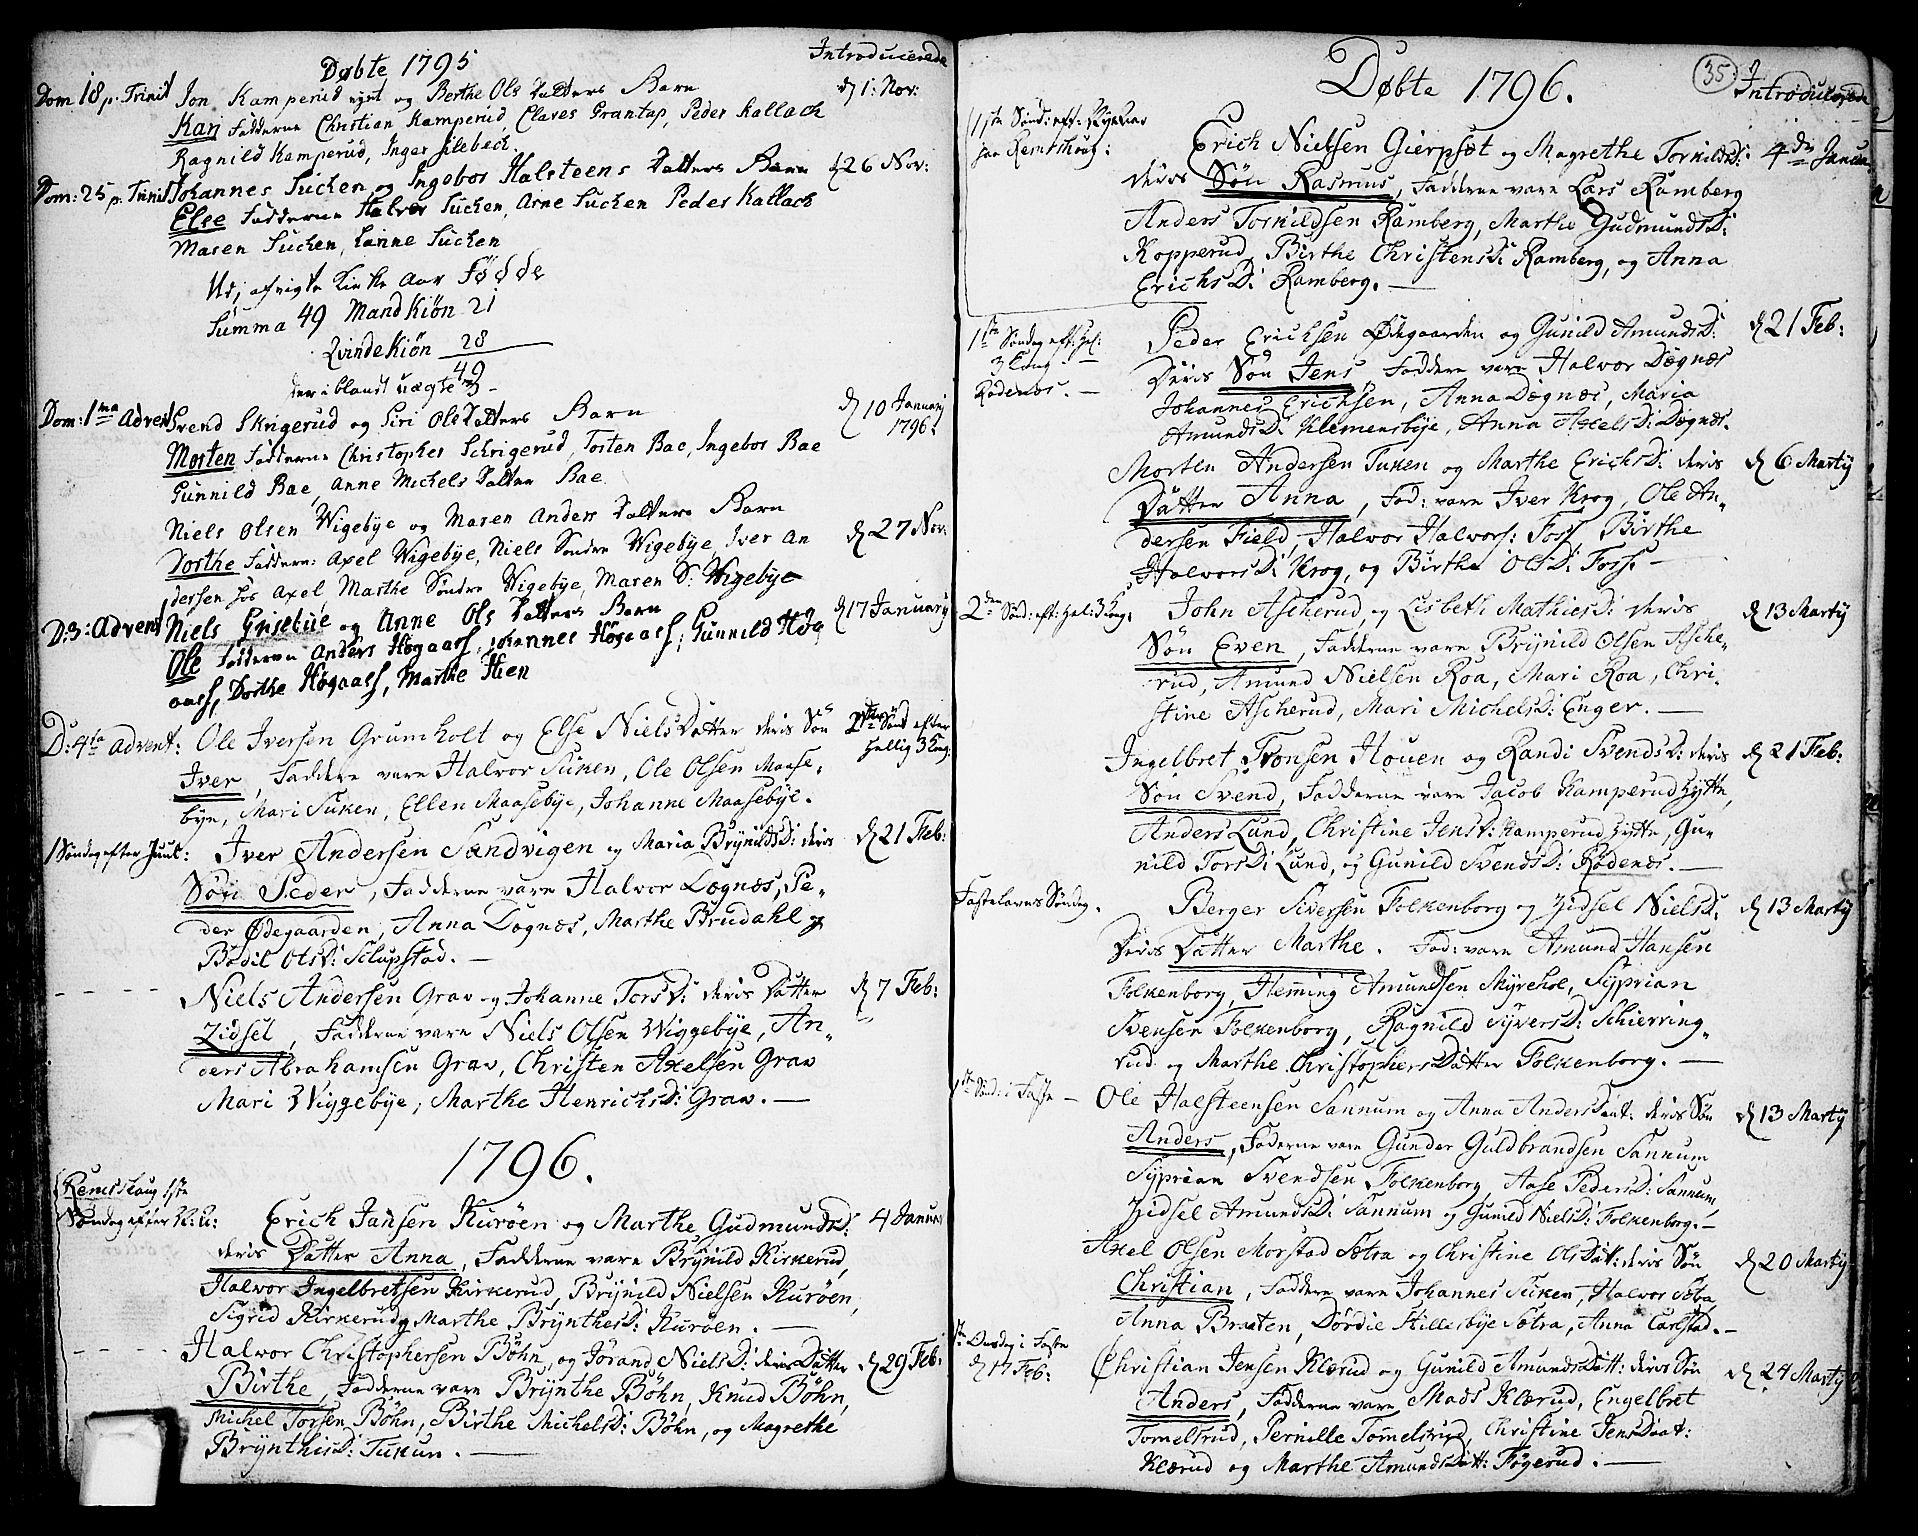 Døbte 1795
Introducerede
Dom 18 p. Trinit Jon Kamperud nynt og Berthe Ols Datters Barn d 1: Nov:
Kari Fadderne Christian Kamperud, Claves Grantap, Peder Kallach
Ragnild Kamperud, Inger Silebech.
Dom: 25 p. Trinit Johannes Tucken og Ingebor Halsteens Datters Barn d 26 Nov:
Else Fadderne Halvor Tucken, Arne Tucken Peder Kallach
Maren Tucken, Tucken
Udj afvigte Kirke Aar Fødde
Summa 49 Mandkiön 21
Qvindekiön 28
49
deriblandt uægte 3
Dom: 1ma Advent Svend Skrigerud og Siri OlsDatters Barn d 10 Januarj
1796.
Morten Fadderne Christopher Schrigerud, Torsten Bae, Ingebor Bae
Gunnild Bae, Anne Michels Datter Bae
Niels Olsen Wigebye og Maren Anders Datters Barn
Dorthe Faddern: Axel Wigebye, Niels Søndre Wigebye, Iver An d 27 Nov:
dersen hos Axel, Marthe Søndre Wigebye, Maren S: Wigebye
D: 3: Advent Niels Grisebue og Anne Ols Datters Barn d 17 January
Ole Fadderne Anders Høgaass, Johannes Høgaass, Gunnild Høg
aass, Dorthe Høgaass, Marthe Hien
D: 4ta Advent: Ole Iversen Grumholt og Else NielsDatter deris Sön 2den Sönd efter
Hellig 3 Kong:
Iver, Faddere vare Halvor Tuken, Ole Olsen Maase-
bye, Mari Tuken, Ellen Maasebye, Johanne Maasebye.
1 Søndag efter Juul: Iver Andersen Sandvigen og Maria BrynildsD: deris d 21 Feb:
Sön Peder, Fadderne vare Halvor Dognæs, Pe-
der Ødegaarden, Anna Dognæs, Marthe Brudahl og
Bodil OlsD: Slupstad.
Niels Andersen Grav og Johanne TorsD: deris Datter d 7 Feb:
Zidsel, Fadderne vare Niels Olsen Wiggebye, An-
ders Abrahamsen Grav, Christen Axelsen Grav
Mari Wiggebye, Marthe HenrichsD: Grav.
1796.
Remsskoug 1ste
Søndag efter N: A: Erich Jansen Kuröen og Marthe GudmundsD: 4 Januar
deris Datter Anna, Fadderne vare Brynild Kirkerud,
Halvor Ingelbretsen Kirkerud, Brynild Nielsen Kuröen,
Sigrid Kirkerud og Marthe BrynthesD: Kuröen.
Halvor Christophersen Böhn, og Jörand NielsD: deris Datter d 29 Feb:
Birthe, Fadderne vare Brynthe Böhn, Knud Böhn,
Michel Torsen Böhn, Birthe MichelsD: Böhn, og Magrethe
BrynthisD: Tukun.
Døbte 1796.
35
Introducerede
1ste Sönd: eft: Nye Aar
paa Remskoug: Erich Nielsen Gierpsæt og Magrethe TorkildsD: 4de Janua
deris Sön Rasmus, Fadderne vare Lars Ramberg
Anders Torkildsen Ramberg, Marthe GudmundsD:
Kopperud, Birthe ChristensD: Ramberg, og Anna
ErichsD: Ramberg.
1ste Søndag eft: Hel:
3 Kong
Rødenæs. Peder Erichsen Ødegaarden og Gunild AmundsD: d 21 Feb:
Deris Sön Jens, Faddere vare Halvor Dægnæs
Johannes Erichsen, Anna Dægnæs, Maria
AmundsD: Klemensbye, Anna AxelsD: Dægnæs.
Morten Andersen Tuken og Marthe ErichsD: deris d 6 Marty
Datter Anna, Fad: vare Iver Krog, Ole An-
dersen Field, Halvor Halvors: Foss, Birthe
HalvorsD: Krog, og Birthe OlsD: Foss.
2den Sönd: eft: Hel: 3 Kong: John Ascherud, og Lisbeth MathiesD: deris d 13 Marty
Sön Even, Fadderne vare Brynild Olsen Asche-
rud, Amund Nielsen Roa, Mari Roa, Chri-
stine Ascherud, Mari MichelsD: Enger.
Ingelbret Tronsen Houen og Randi SvendsD: deris d 21 Feb:
Sön Svend, Fadderne vare Jacob Kamperud Hytte,
Anders Lund, Christine JensD: Kamperud Hytte, Gu-
nild TorsD: Lund, og Gunild SvendsD: Rødenæs.
Fastelavns Søndag. Berger Siversen Folkenborg og Zidsel NielsD: d 13 Marty
Deris Datter Marthe. Fad: vare Amund Hansen
Folkenborg, Heming Amundsen Myrehol, Syprian
Svensen Folkenborg, Ragnild SyversD: Schierring-
rud og Marthe ChristophersDatter Folkenborg.
1ste Sönd: i Faste Ole Halsteensen Sannum og Anna AndersDaat: deris Sön d 13 Marty
Anders, Fadderne vare Gunder Guldbrandsen Sannum
Syprian Svendsen Folkenborg, Aase PedersD: Sannum,
Zidsel AmundsD: Sannum og Gunild NielsD: Folkenborg.
Axel Olsen Morstad Sætra og Christine OlsDat: deris Sön d 20 Marty
Christian, Faddere vare Johannes Tuken, Halvor Sætra
Anna Braaten, Dordie Hillesbye Sætra, Anna Carlstad.
1ste Onsdag i Faste
d 17 Feb: Christian Jensen Klærud og Gunild AmundsDatt: deris Sön d 24 Marty
Anders, Fadderne vare Mads Klærud, Engelbret
Tomelsrud, Pernille Tomelsrud, Christine JensDaat:
Klærud og Marthe AmundsDatt: Fögerud.